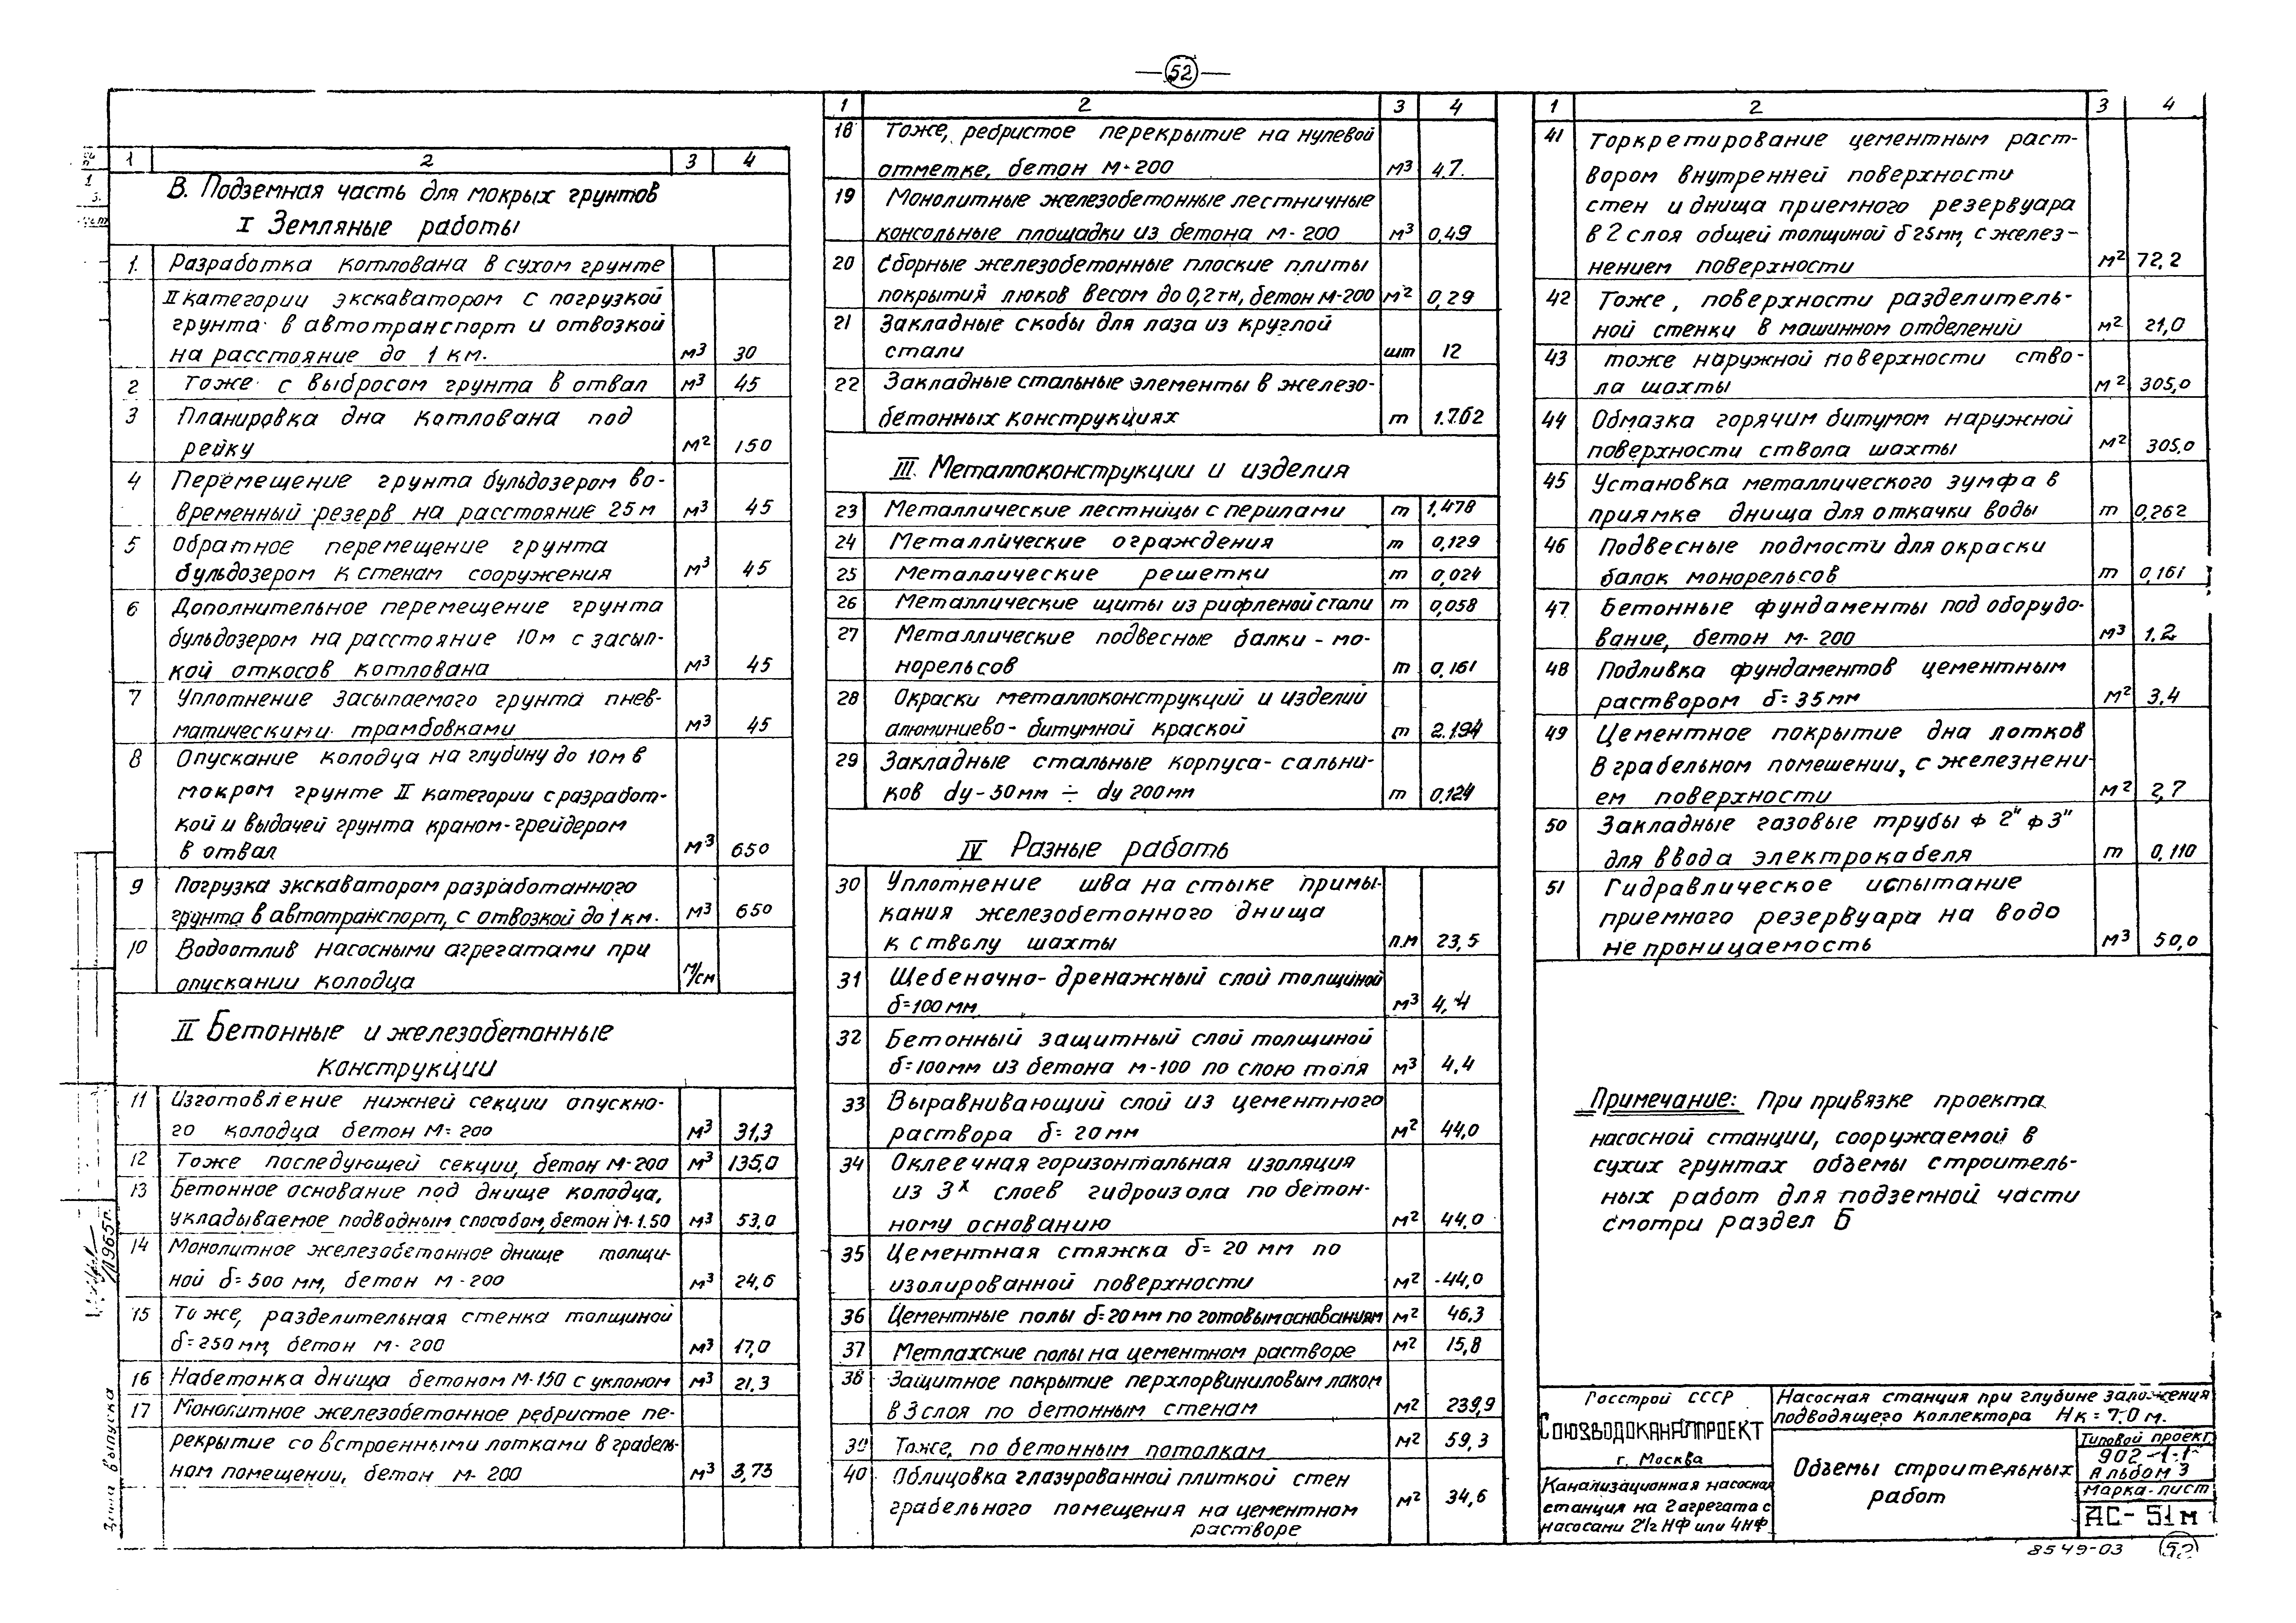 52
1 2 3 4
В. Подземная часть для мокрых грунтов
I Земляные работы
1. Разработка котлована в сухом грунте
II категории экскаватором с погрузкой
грунта в автотранспорт и отвозкой
на расстояние до 1 км. м³ 30
2 Тоже с выбросом грунта в отвал м³ 45
3 Планировка дна котлована под
рейку м² 150
4 Перемещение грунта бульдозером во-
временный резерв на расстояние 25м м³ 45
5 Обратное перемещение грунта
бульдозером к стенам сооружения м³ 45
6 Дополнительное перемещение грунта
бульдозером на расстояние 10м с засып-
кой откосов котлована м³ 45
7 Уплотнение засыпаемого грунта пнев-
матическими трамбовками м³ 45
8 Опускание колодца на глубину до 10м в
мокром грунте II категории с разработ-
кой и выдачей грунта краном-грейдером
в отвал м³ 650
9 Погрузка экскаватором разработанного
грунта в автотранспорт, с отвозкой до 1 км. м³ 650
10 Водоотлив насосными агрегатами при
опускании колодца м/см
II Бетонные и железобетонные
конструкции
11 Изготовление нижней секции опускно-
го колодца бетон М-200 м³ 31,3
12 Тоже последующей секции, бетон М-200 м³ 135,0
13 Бетонное основание под днище колодца,
укладываемое подводным способом, бетон М-150 м³ 53,0
14 Монолитное железобетонное днище толщи-
ной δ=500 мм, бетон М-200 м³ 24,6
15 То же, разделительная стенка толщиной
δ=250 мм, бетон М-200 м³ 17,0
16 Набетонка днища бетоном М-150 с уклоном м³ 21,3
17 Монолитное железобетонное ребристое пе-
рекрытие со встроенными лотками в грабель-
ном помещении, бетон М-200 м³ 3,73
1 2 3 4
18 Тоже, ребристое перекрытие на нулевой
отметке, бетон М-200 м³ 4,7.
19 Монолитные железобетонные лестничные
консольные площадки из бетона М-200 м³ 0,49
20 Сборные железобетонные плоские плиты
покрытий люков весом до 0,2 тн, бетон М-200 м² 0,29
21 Закладные скобы для лаза из круглой
стали шт 12
22 Закладные стальные элементы в железо-
бетонных конструкциях т 1.762
III. Металлоконструкции и изделия
23 Металлические лестницы с перилами т 1,478
24 Металлические ограждения т 0,129
25 Металлические решетки т 0,024
26 Металлические щиты из рифленой стали т 0,058
27 Металлические подвесные балки - мо-
норельсов т 0,161
28 Окраски металлоконструкций и изделий
алюминиево-битумной краской т 2.194
29 Закладные стальные корпуса-сальни-
ков dy-50мм ÷ dy 200мм т 0,124
IV Разные работь
30 Уплотнение шва на стыке примы-
кания железобетонного днища
к стволу шахты п.м 23,5
31 Щебеночно-дренажный слой толщиной
δ=100мм м³ 4,4
32 Бетонный защитный слой толщиной
δ=100мм из бетона М-100 по слою толя м³ 4,4
33 Выравнивающий слой из цементного
раствора δ=20мм м² 44,0
34 Оклеечная горизонтальная изоляция
из 3х слоев гидроизола по бетон-
ному основанию м² 44,0
35 Цементная стяжка δ=20 мм по
изолированной поверхности м² 44,0
36 Цементные полы δ=20мм по готовым основаниям м² 46,3
37 Метлахские полы на цементном растворе м² 15,8
38 Защитное покрытие перхлорвиниловым лаком
в 3 слоя по бетонным стенам м² 239,9
39 Тоже, по бетонным потолкам м² 59,3
40 Облицовка глазурованной плиткой стен
грабельного помещения на цементном
растворе м² 34,6
1 2 3 4
41 Торкретирование цементным раст-
вором внутренней поверхности
стен и днища приемного резервуара
в 2 слоя общей толщиной δ25мм, с желез-
нением поверхности м² 72,2
42 Тоже, поверхности разделитель-
ной стенки в машинном отделений м² 21,0
43 тоже наружной поверхности ство-
ла шахты м² 305,0
44 Обмазка горячим битумом наружной
поверхности ствола шахты м² 305,0
45 Установка металлического зумфа в
приямке днища для откачки воды т 0,262
46 Подвесные подмости для окраски
балок монорельсов т 0,161
47 Бетонные фундаменты под оборудо-
вание, бетон М-200 м³ 1.2
48 Подливка фундаментов цементным
раствором δ=35мм м² 3,4
49 Цементное покрытие дна лотков
в грабельном помешении, с железнени-
ем поверхности м² 2,7
50 Закладные газовые трубы ф 2" ф 3"
для ввода электрокабеля т 0,110
51 Гидравлическое испытание
приемного резервуара на водо
непроницаемость м³ 50,0
Примечание: При привязке проекта
насосной станции, сооружаемой в
сухих грунтах объемы строитель-
ных работ для подземной части
смотри раздел Б
Госстрой СССР
Союзводоканалпроект
г. Москва
Канализационная насосная
станция на 2 агрегата с
насосами 2½ НФ или 4НФ
Насосная станция при глубине заложения
подводящего коллектора Нк=7,0 м.
Объемы строительных
работ
Типовой проект
902-1-1
Альбом 3
Марка-лист
АС-51м
8549-03 52
1965г.
выпуска